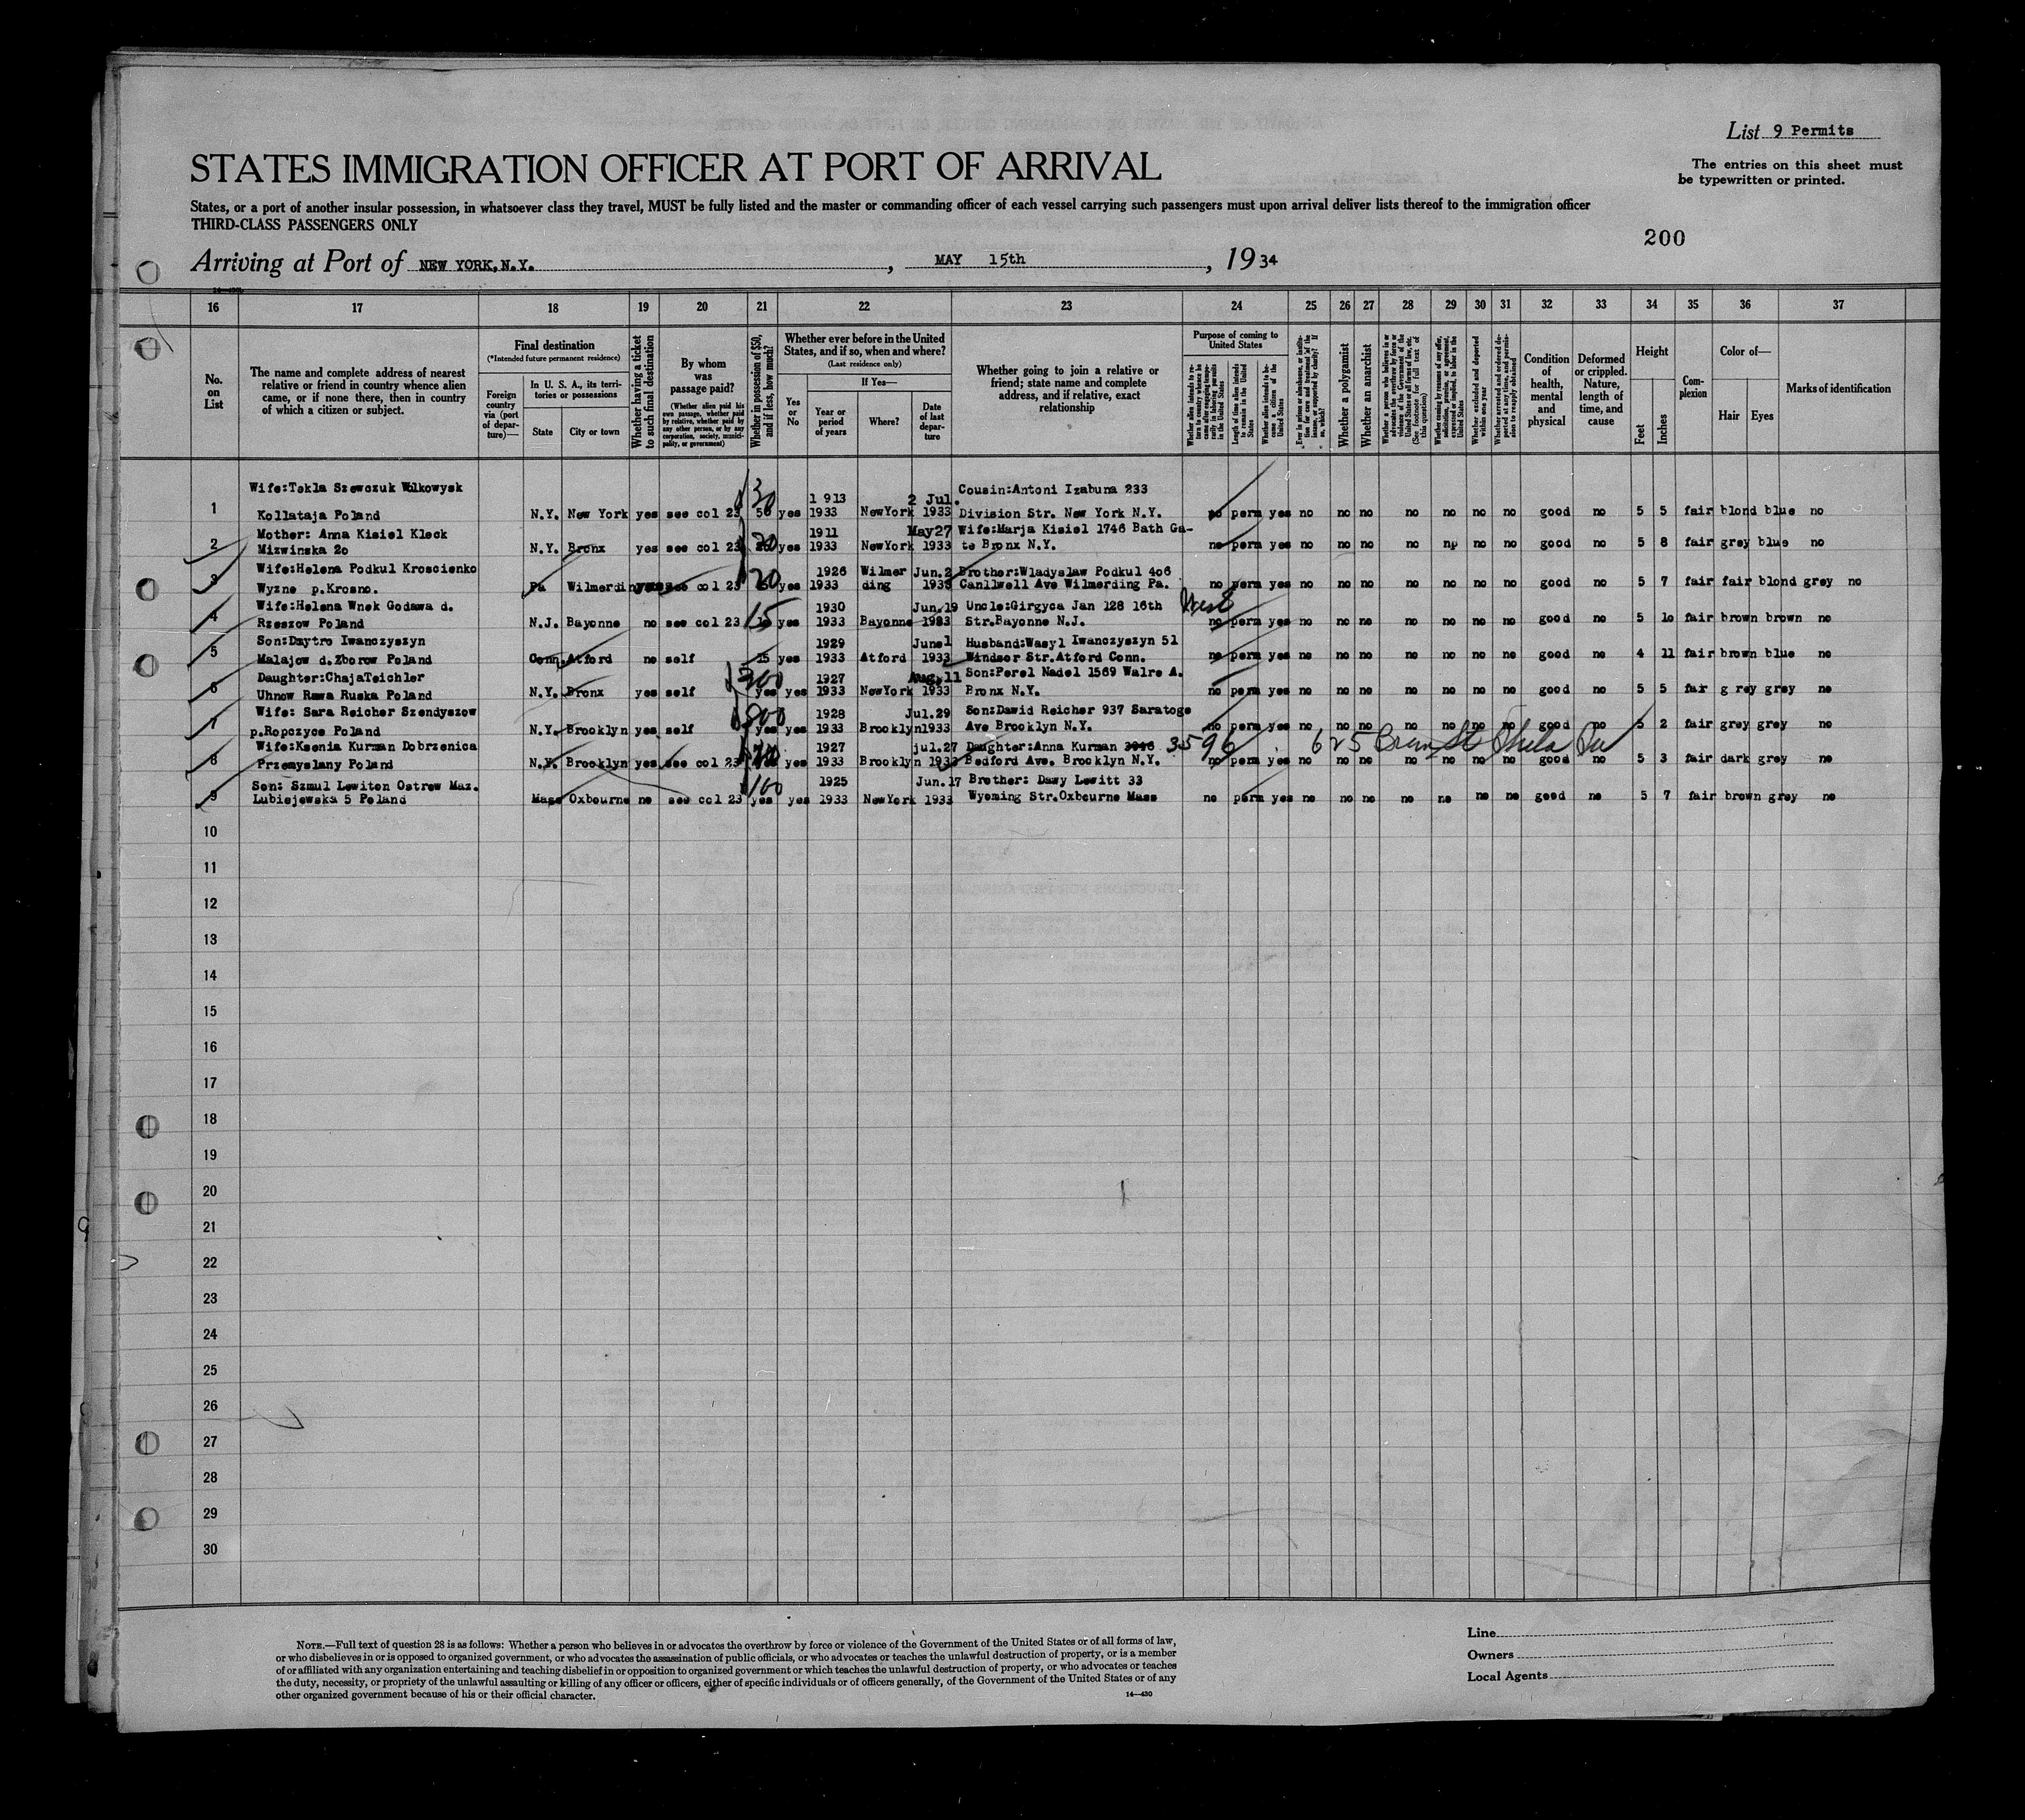 List 9 Permits
STATES IMMIGRATION OFFICER AT PORT OF ARRIVAL
The entries on this sheet must
be typewritten or printed.
States, or a port of another insular possession, in whatsoever class they travel, MUST be fully listed and the master or commanding officer of each vessel carrying such passengers must upon arrival deliver lists thereof to the immigration officer
THIRD-CLASS PASSENGERS ONLY
200
Arriving at Port of NEW YORK, N.Y. , MAY 15th , 19 34
16 17 18 19 20 21 22 23 24 25 26 27 28 29 30 31 32 33 34 35 36 37
No. on List
The name and complete address of nearest relative or friend in country whence alien came, or if none there, then in country of which a citizen or subject.
Final destination
(*Intended future permanent residence)
Foreign country via (port of departure)—
In U. S. A., its territories or possessions
State
City or town
Whether having a ticket to such final destination
By whom was passage paid?
(Whether alien paid his own passage, whether paid by relative, whether paid by any other person, or by any corporation, society, municipality, or government)
Whether in possession of $50, and if less, how much?
Whether ever before in the United States, and if so, when and where?
(Last residence only)
Yes or No
If Yes—
Year or period of years
Where?
Date of last departure
Whether going to join a relative or friend; state name and complete address, and if relative, exact relationship
Purpose of coming to United States
Whether a polygamist
Whether an anarchist
Condition of health, mental and physical
Deformed or crippled. Nature, length of time, and cause
Height
Feet
Inches
Complexion
Color of—
Hair
Eyes
Marks of identification
Wife:Tekla Szewczuk Wolkowysk $30 1913 2 Jul. Cousin:Antoni Izabuna 233
1 Kollataja Poland N.Y. New York yes see col 23 50 yes 1933 NewYork 1933 Division Str. New York N.Y. no perm yes no no no no no no no good no 5 5 fair blond blue no
Mother: Anna Kisiel Kleck 1911 May27 Wife:Marja Kisiel 1746 Bath Ga-
2 Mizwinska 2o N.Y. Bronx yes see col 23 $20 yes 1933 NewYork 1933 te Bronx N.Y. no perm yes no no no no np no no good no 5 8 fair grey blue no
Wife:Helena Podkul Kroscienko 1926 Wilmer Jun.2 Brother:Wladyslaw Podkul 4o6
3 Wyzne p.Krosno. Pa Wilmerding yes see col 23 20 yes 1933 ding 1933 Canllwell Ave Wilmerding Pa. no perm yes no no no no no no no good no 5 7 fair fair blond grey no
Wife:Helena Wnek Godawa d. 1930 Jun.19 Uncle:Girgyca Jan 128 16th West
4 Rzeszow Poland N.J. Bayonne no see col 23 15 yes 1933 Bayonne 1933 Str.Bayonne N.J. no perm yes no no no no no no no good no 5 1o fair brown brown no
Son:Dmytro Iwanczyszyn 1929 June1 Husband:Wasyl Iwanczyszyn 51
5 Malajow d.Zborow Poland Conn. Atford no self 15 yes 1933 Atford 1933 Windsor Str.Atford Conn. no perm yes no no no no no no no good no 4 11 fair brown blue no
Daughter:ChajaTeichler $300 1927 Aug.11 Son:Perel Nadel 1569 Walre A.
6 Uhnow Rawa Ruska Poland N.Y. Bronx yes self yes yes 1933 NewYork 1933 Bronx N.Y. no perm yes no no no no no no no good no 5 5 fair g rey grey no
Wife: Sara Reicher Szendyszow $800 1928 Jul.29 Son:Dawid Reicher 937 Saratoge
7 p.Ropczyce Poland N.Y. Brooklyn yes self yes yes 1933 Brooklyn 1933 Ave Brooklyn N.Y. no perm yes no no no no no no no good no 5 2 fair grey grey no
Wife:Ksenia Kurman Dobrzenica 1927 jul.27 Daughter:Anna Kurman 3596 625 St Phila
8 Przemyslany Poland N.Y. Brooklyn yes see col 23 yes 1933 Brooklyn 1933 Bedford Ave. Brooklyn N.Y. no perm yes no no no no no no no good no 5 3 fair dark grey no
Son: Szmul Lewiton Ostrow Maz. $100 1925 Jun.17 Brother: Dawy Lewitt 33
9 Lubiejewska 5 Poland Mass Oxbourne no see col 23 yes yes 1933 NewYork 1933 Wyoming Str.Oxbourne Mass no perm yes no no no no no no no good no 5 7 fair brown grey no
10
11
12
13
14
15
16
17
18
19
20
21
22
23
24
25
26
27
28
29
30
NOTE.—Full text of question 28 is as follows: Whether a person who believes in or advocates the overthrow by force or violence of the Government of the United States or of all forms of law,
or who disbelieves in or is opposed to organized government, or who advocates the assassination of public officials, or who advocates or teaches the unlawful destruction of property, or is a member
of or affiliated with any organization entertaining and teaching disbelief in or opposition to organized government or which teaches the unlawful destruction of property, or who advocates or teaches
the duty, necessity, or propriety of the unlawful assaulting or killing of any officer or officers, either of specific individuals or of officers generally, of the Government of the United States or of any
other organized government because of his or their official character.
14—430
Line
Owners
Local Agents